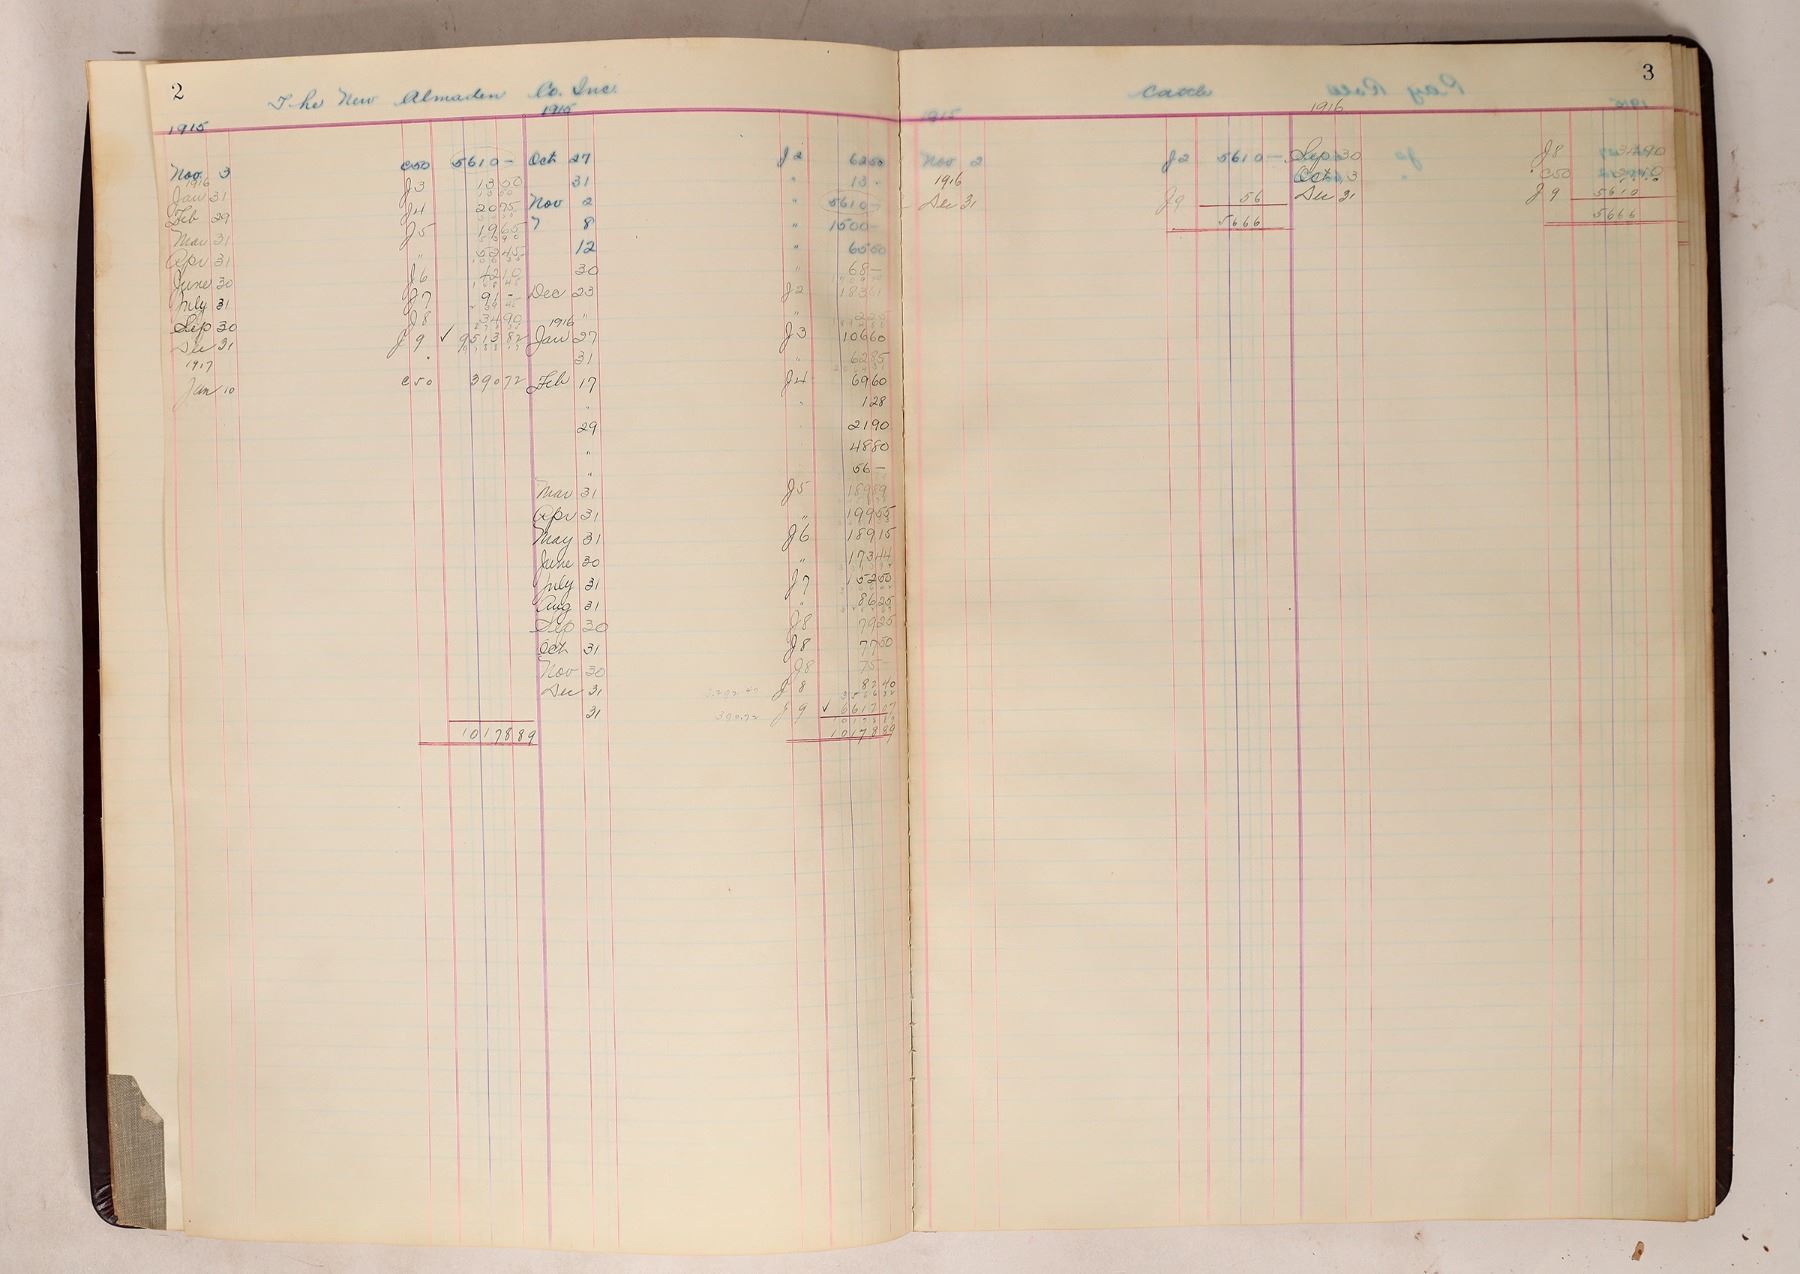 2
The New Almaden Co. Inc.
1915
1915
Nov 3 C50 5610 -
1916
Jan 31 J3 1350
Feb 29 J4 2075
Mar 31 J5 1965
Apr 31 " 5245
June 30 J6 4210
July 31 J7 91 -
Sep 30 J8 3490
Dec 31 J9 ✓ 951382
1917
Jan 10 C50 39072
1017889
Oct 27 J2 6250
31 " 13 -
Nov 2 " 5610 -
7 8 " 1500 -
12 " 6550
30 " 68 -
Dec 23 J2 18361
1916 " "
Jan 27 J3 10660
31 " 6285
Feb 17 J4 6960
" " 128
29 2190
" 4880
" 56 -
Mar 31 J5 18989
Apr 31 " 19955
May 31 J6 18915
June 30 " 17344
July 31 J7 15250
Aug 31 " 8625
Sep 30 J8 7925
Oct 31 J8 7750
Nov 30 J8 75 -
Dec 31 J8 8240
31 390.72 J9 ✓ 661707
1017889
3
Cattle
1915
1916
Nov 2 J2 5610 -
1916
Dec 31 J9 56
5666
Sep 30 J8
Oct 3 C50
Dec 31 J9 5610
5666